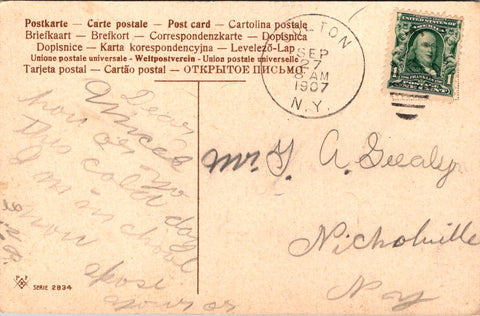 Postkarte — Carte postale — Post card — Cartolina postale
Briefkaart — Brefkort — Correspondenzkarte — Dopisnica
Dopisnice — Karta korespondencyjna — Levelező-Lap
Unione postale universale - Weltpostverein - Union postale universelle
Tarjeta postal — Cartão postal — ОТКРЫТОЕ ПИСЬМО
SEP
27
8 AM
1907
N.Y.
1
Dear
how or yo
this cold day
I am in
now
spose
your
Mr.
A.
Nicholville
N.Y.
SERIE 2834